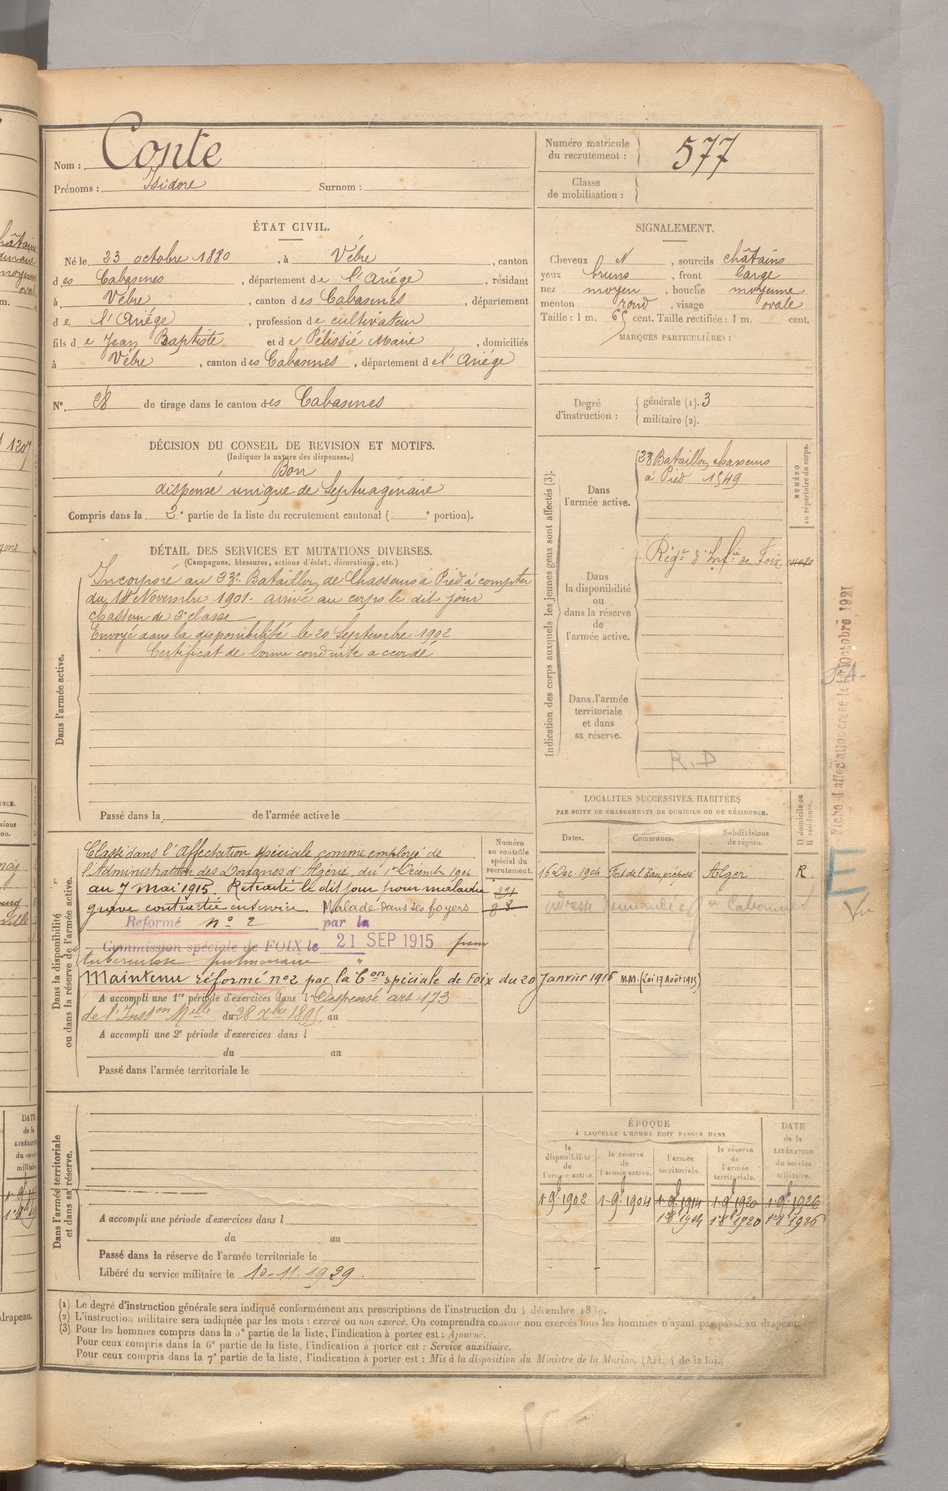 Nom : Conte
Prénoms : Isidore Surnom :
Numéro matricule du recrutement : 577
Classe de mobilisation :
ÉTAT CIVIL.
Né le 23 octobre 1880, à Vèbre, canton
des Cabannes, département de l'Ariège, résidant
à Vèbre, canton des Cabannes, département
de l'Ariége, profession de cultivateur
fils de Jean Baptiste et de Pélissié Marie, domiciliés
à Vèbre, canton des Cabannes, département de l'Ariége
N° 28 de tirage dans le canton des Cabannes
SIGNALEMENT.
Cheveux N, sourcils châtains
yeux bruns, front large
nez moyen, bouche moyenne
menton rond, visage ovale
Taille : 1 m. 65 cent. Taille rectifiée : 1 m. cent.
MARQUES PARTICULIÈRES :
Degré d'instruction : générale (1). 3
militaire (2).
DÉCISION DU CONSEIL DE REVISION ET MOTIFS.
(Indiquer la nature des dispenses.)
Bon
dispensé unique de septuagénaire
Compris dans la 2e partie de la liste du recrutement cantonal ( e portion).
DÉTAIL DES SERVICES ET MUTATIONS DIVERSES.
(Campagnes, blessures, actions d'éclat, décorations, etc.)
Dans l'armée active.
Incorporé au 23e Bataillon de Chasseurs à Pied à compter
du Novembre 1901. arrivé au corps le dit jour
chasseur de 2e classe
Envoyé dans la disponibilité le 20 Septembre 1902
Certificat de bonne conduite accordé
Passé dans la de l'armée active le
Indication des corps auxquels les jeunes gens sont affectés (3).
NUMÉRO au répertoire du corps.
Dans l'armée active.
Bataillon chasseurs
à Pied 1549
Dans la disponibilité ou dans la réserve de l'armée active.
Régt d'Infie de Foix
Dans l'armée territoriale et dans sa réserve.
R.D
Fiche d'affectation créée le Octobre 1921
LOCALITÉS SUCCESSIVES HABITÉES
PAR SUITE DE CHANGEMENTS DE DOMICILE OU DE RÉSIDENCE.
Dates. Communes. Subdivisions de région. D domicile ou R résidence.
16 Déc. 1904 Fort de l'Eau préposé Alger R.
Dans la disponibilité ou dans la réserve de l'armée active.
Numéro au contrôle spécial du recrutement.
Classé dans l'Affectation spéciale comme employé de
l'Administration des Douanes d'Algérie du 1er Décembre 1904
au 7 mai 1915. Retraité le dit jour pour maladie
grave contractée en service. Malade dans ses foyers
Réformé n° 2 par la
Commission spéciale de FOIX le 21 SEP 1915 pour
tuberculose pulmonaire
Maintenu réformé n°2 par la Con spéciale de Foix du 20 Janvier 1916 M.M. (Loi 17 Août 1915)
A accompli une 1re période d'exercices dans l Dispensé art 173
de l'Inston Mlle du 28 Xbre 1895 au
A accompli une 2e période d'exercices dans l
du au
Passé dans l'armée territoriale le
Dans l'armée territoriale et dans sa réserve.
A accompli une période d'exercices dans l
du au
Passé dans la réserve de l'armée territoriale le
Libéré du service militaire le 10-11-1929.
ÉPOQUE
À LAQUELLE L'HOMME DOIT PASSER DANS
la disponibilité de l'armée active. la réserve de l'armée active. l'armée territoriale. la réserve de l'armée territoriale. DATE de la LIBÉRATION du service militaire.
1 9bre 1902 1 9bre 1904 1 9bre 1914 1 9bre 1920 1 9bre 1926
(1) Le degré d'instruction générale sera indiqué conformément aux prescriptions de l'instruction du 4 décembre
(2) L'instruction militaire sera indiquée par les mots : exercé ou non exercé. On comprendra comme non exercés tous les hommes n'ayant pas passé au drapeau.
(3) Pour les hommes compris dans la 5e partie de la liste, l'indication à porter est : Ajourné.
Pour ceux compris dans la 6e partie de la liste, l'indication à porter est : Service auxiliaire.
Pour ceux compris dans la 7e partie de la liste, l'indication à porter est : Mis à la disposition du Ministre de la Marine. (Art. 4 de la loi.)